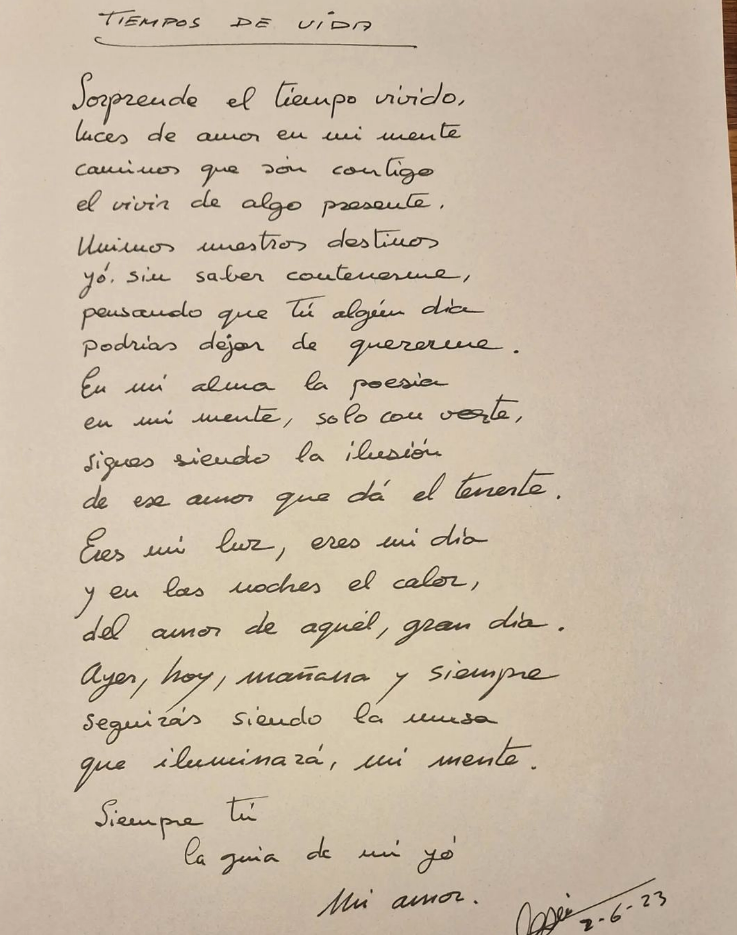 TIEMPOS DE VIDA
Sorprende el tiempo vivido,
luces de amor en mi mente
caminos que són contigo
el vivir de algo presente.
Unimos nuestros destinos
yó. sin saber contenerme,
pensando que tú algún dia
podrias dejar de quererme.
En mi alma la poesia
en mi mente, solo con verte,
sigues siendo la ilusión
de ese amor que dá el tenerte.
Eres mi luz, eres mi dia
y en las noches el calor,
del amor de aquél, gran dia.
Ayer, hoy, mañana y siempre
seguirás siendo la musa
que iluminará, mi mente.
Siempre tú
la guia de mi yó
Mi amor.
2-6-23